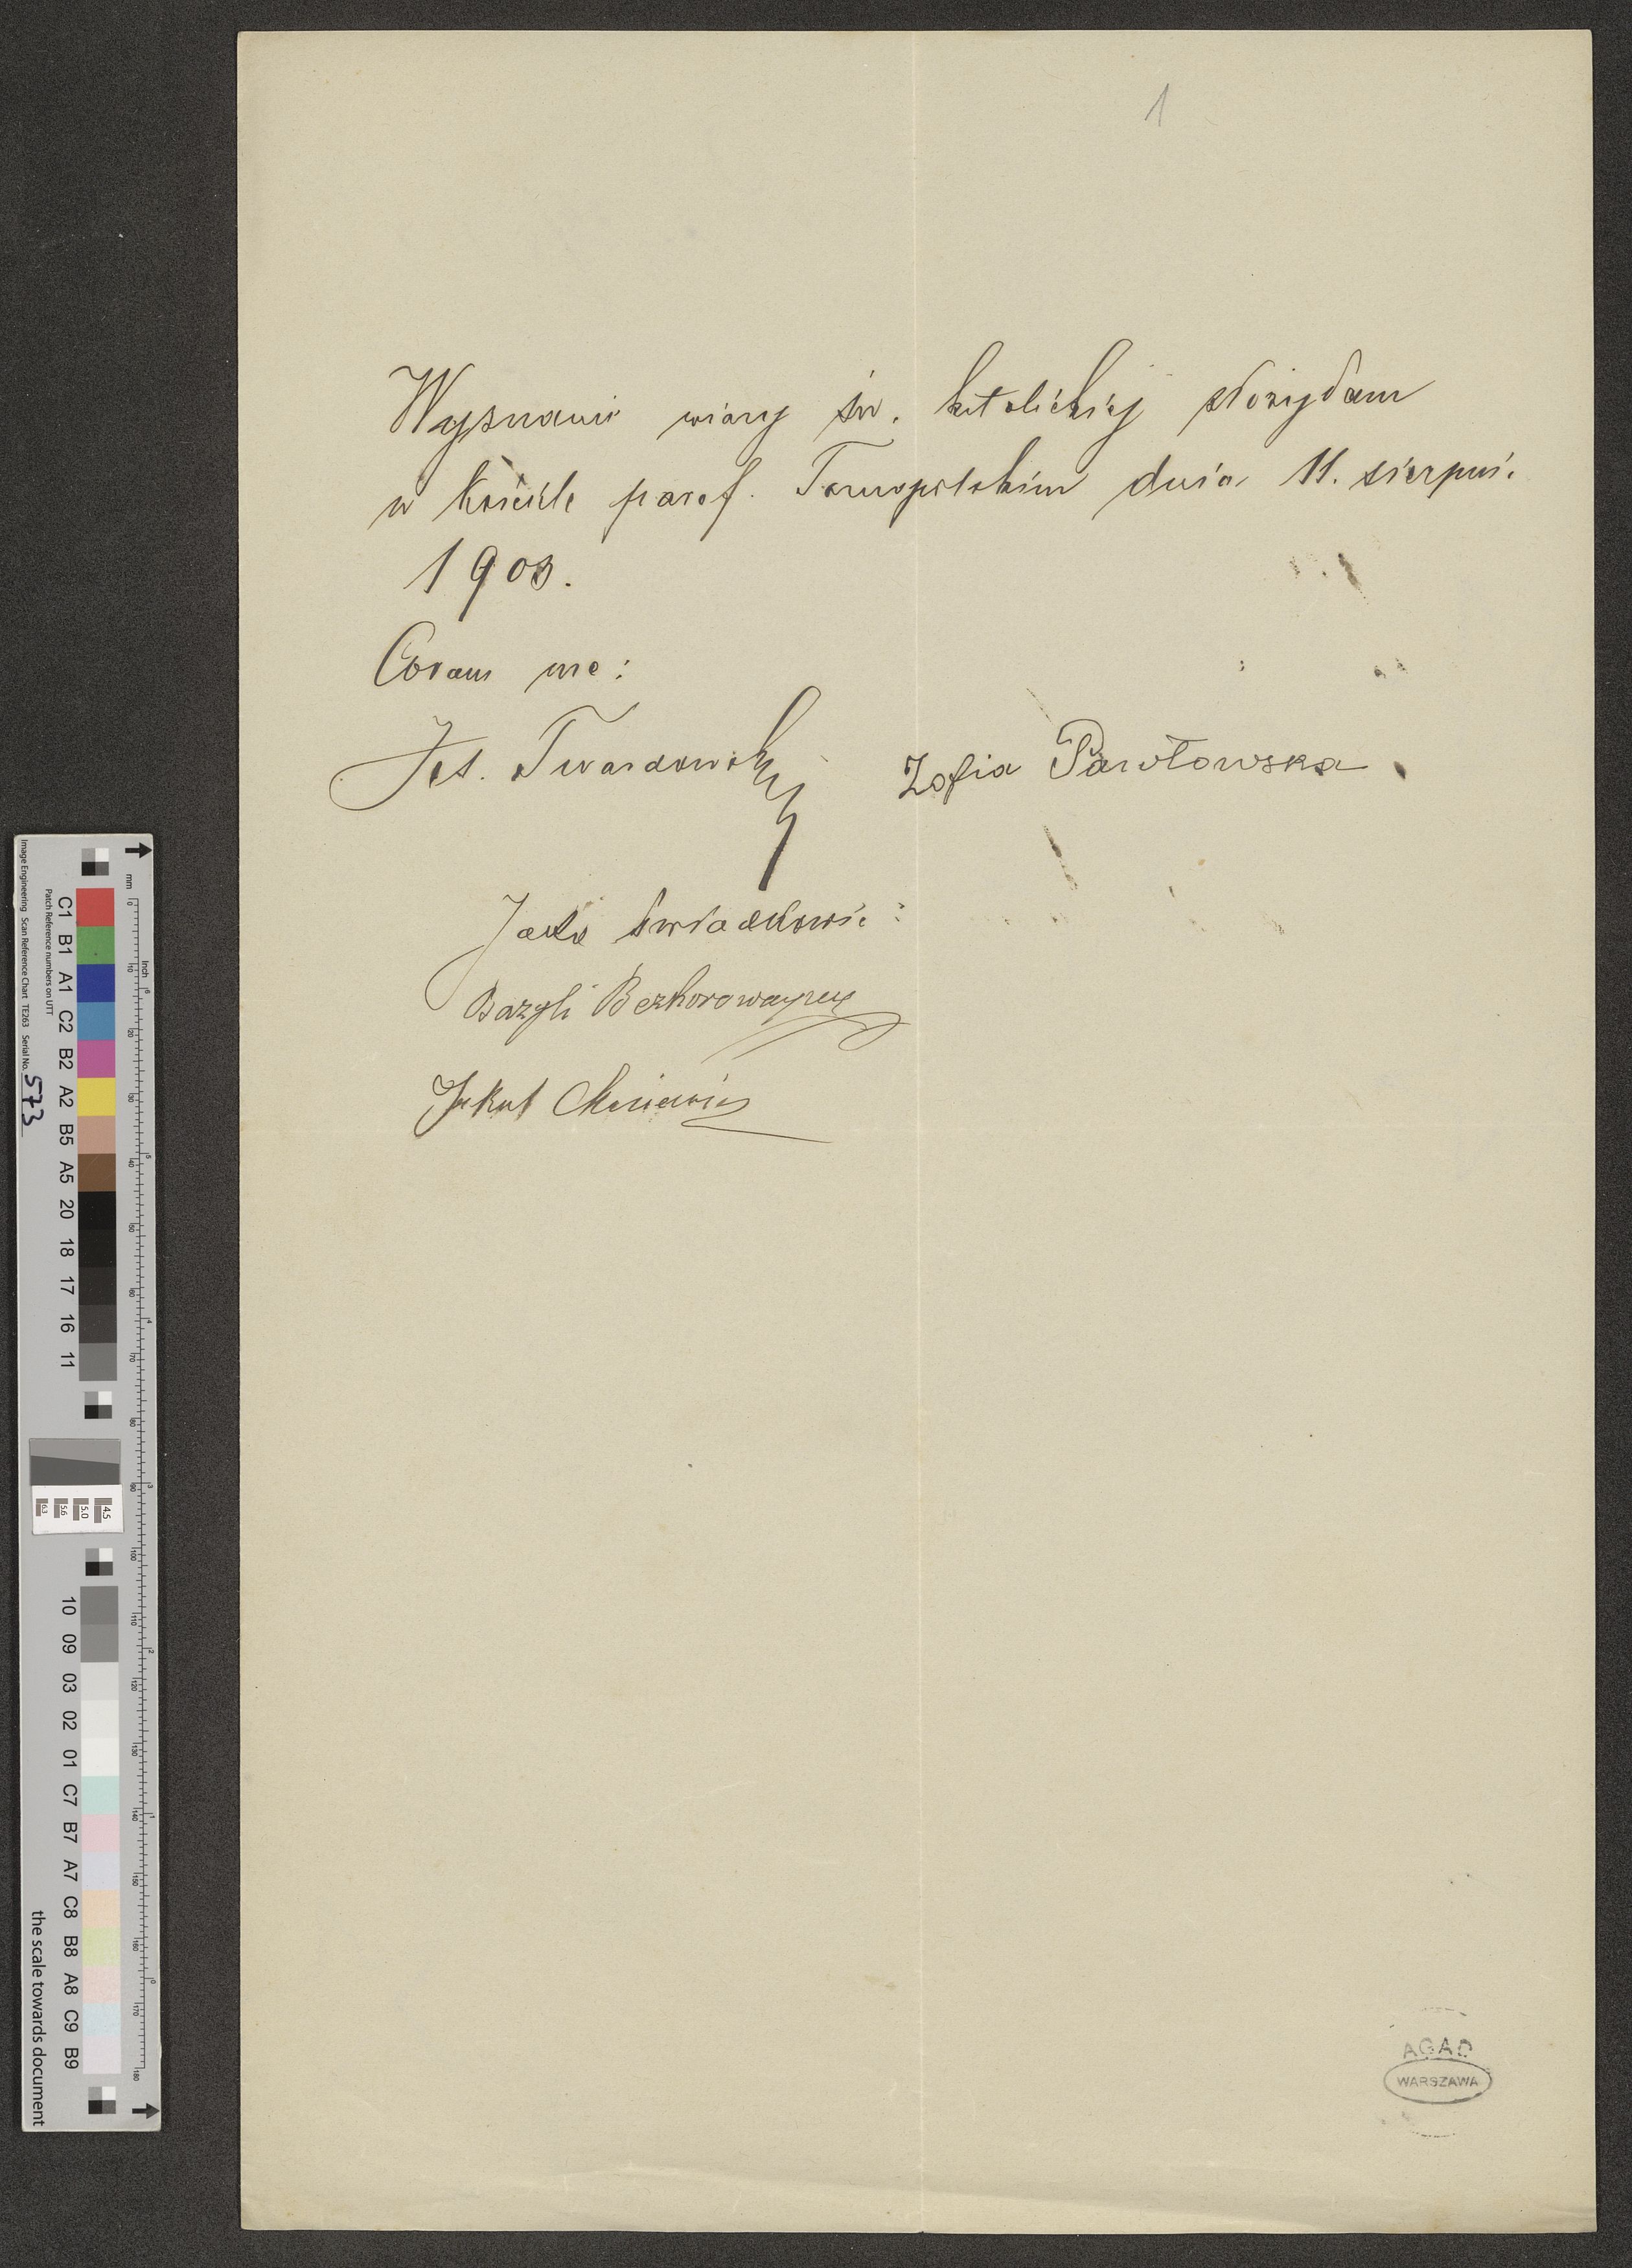 1
Wyznanie wiary św. katolickiej złożyłam
w kościele paraf. Tarnopolskim dnia 11. sierpnia
1903.
Coram me:
Twardowski Zofia Pawłowska
Jako świadkowie:
Bazyli Bezkorowajny
Jakub
AGAD
WARSZAWA
Image Engineering Scan Reference Chart TE263 Serial No. 573
Patch Reference numbers on UTT
C1 B1 A1 C2 B2 A2 B5 A5 20 18 17 16 11
10 09 03 02 01 C7 B7 A7 C8 B8 A8 C9 B9
the scale towards document